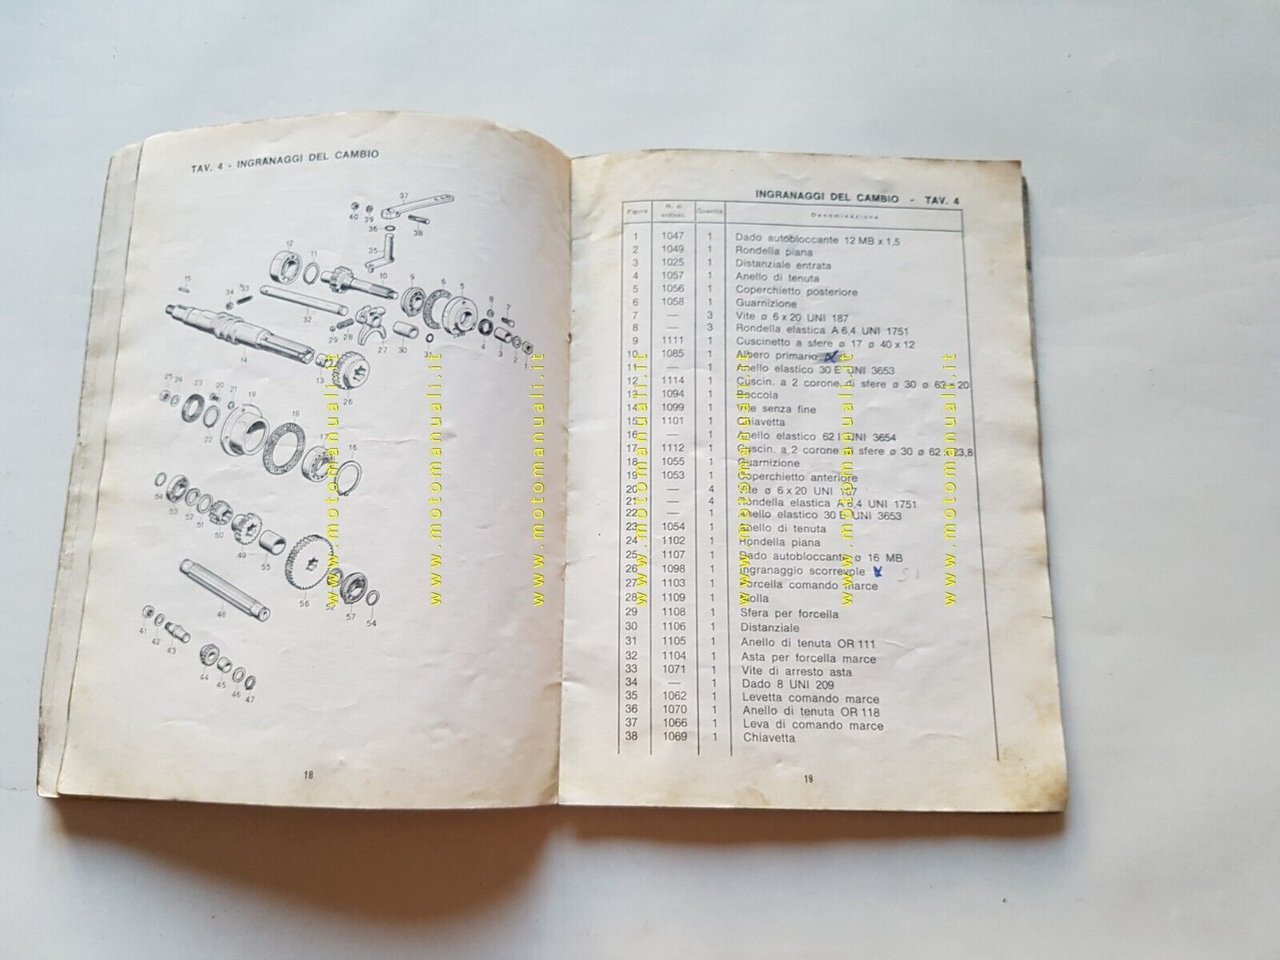 TAV. 4 - INGRANAGGI DEL CAMBIO
37
40 39
36 38
12 11 35
10 9 6 5
15 34 33 8 7
32 29 28 27 30 31 4 3 2 1
14 13 26
25 24 23 20 21 19 18
22 17 16
54 53 52 51 50 49 55
56 52 57 54
48
41 42 43
44 45 46 47
18
INGRANAGGI DEL CAMBIO - TAV. 4
Figura N. di ordinaz. Quantità Denominazione
1 1047 1 Dado autobloccante 12 MB x 1,5
2 1049 1 Rondella piana
3 1025 1 Distanziale entrata
4 1057 1 Anello di tenuta
5 1056 1 Coperchietto posteriore
6 1058 1 Guarnizione
7 — 3 Vite ø 6 x 20 UNI 187
8 — 3 Rondella elastica A 6,4 UNI 1751
9 1111 1 Cuscinetto a sfere ø 17 ø 40 x 12
10 1085 1 Albero primario
11 — 1 Anello elastico 30 E UNI 3653
12 1114 1 Cuscin. a 2 corone di sfere ø 30 ø 62 x 20
13 1094 1 Boccola
14 1099 1 Vite senza fine
15 1101 1 Chiavetta
16 — 1 Anello elastico 62 I UNI 3654
17 1112 1 Cuscin. a 2 corone di sfere ø 30 ø 62 x 23,8
18 1055 1 Guarnizione
19 1053 1 Coperchietto anteriore
20 — 4 Vite ø 6 x 20 UNI 187
21 — 4 Rondella elastica A 6,4 UNI 1751
22 — 1 Anello elastico 30 E UNI 3653
23 1054 1 Anello di tenuta
24 1102 1 Rondella piana
25 1107 1 Dado autobloccante ø 16 MB
26 1098 1 Ingranaggio scorrevole
27 1103 1 Forcella comando marce
28 1109 1 Molla
29 1108 1 Sfera per forcella
30 1106 1 Distanziale
31 1105 1 Anello di tenuta OR 111
32 1104 1 Asta per forcella marce
33 1071 1 Vite di arresto asta
34 — 1 Dado 8 UNI 209
35 1062 1 Levetta comando marce
36 1070 1 Anello di tenuta OR 118
37 1066 1 Leva di comando marce
38 1069 1 Chiavetta
19
www.motomanuali.it
www.motomanuali.it
www.motomanuali.it
www.motomanuali.it
www.motomanuali.it
www.motomanuali.it
www.motomanuali.it